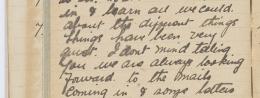 in & learn all we could.
7. About the different things
things have been very
quiet. I dont mind telling
you we are always looking
forward to the mails
coming in & some letters